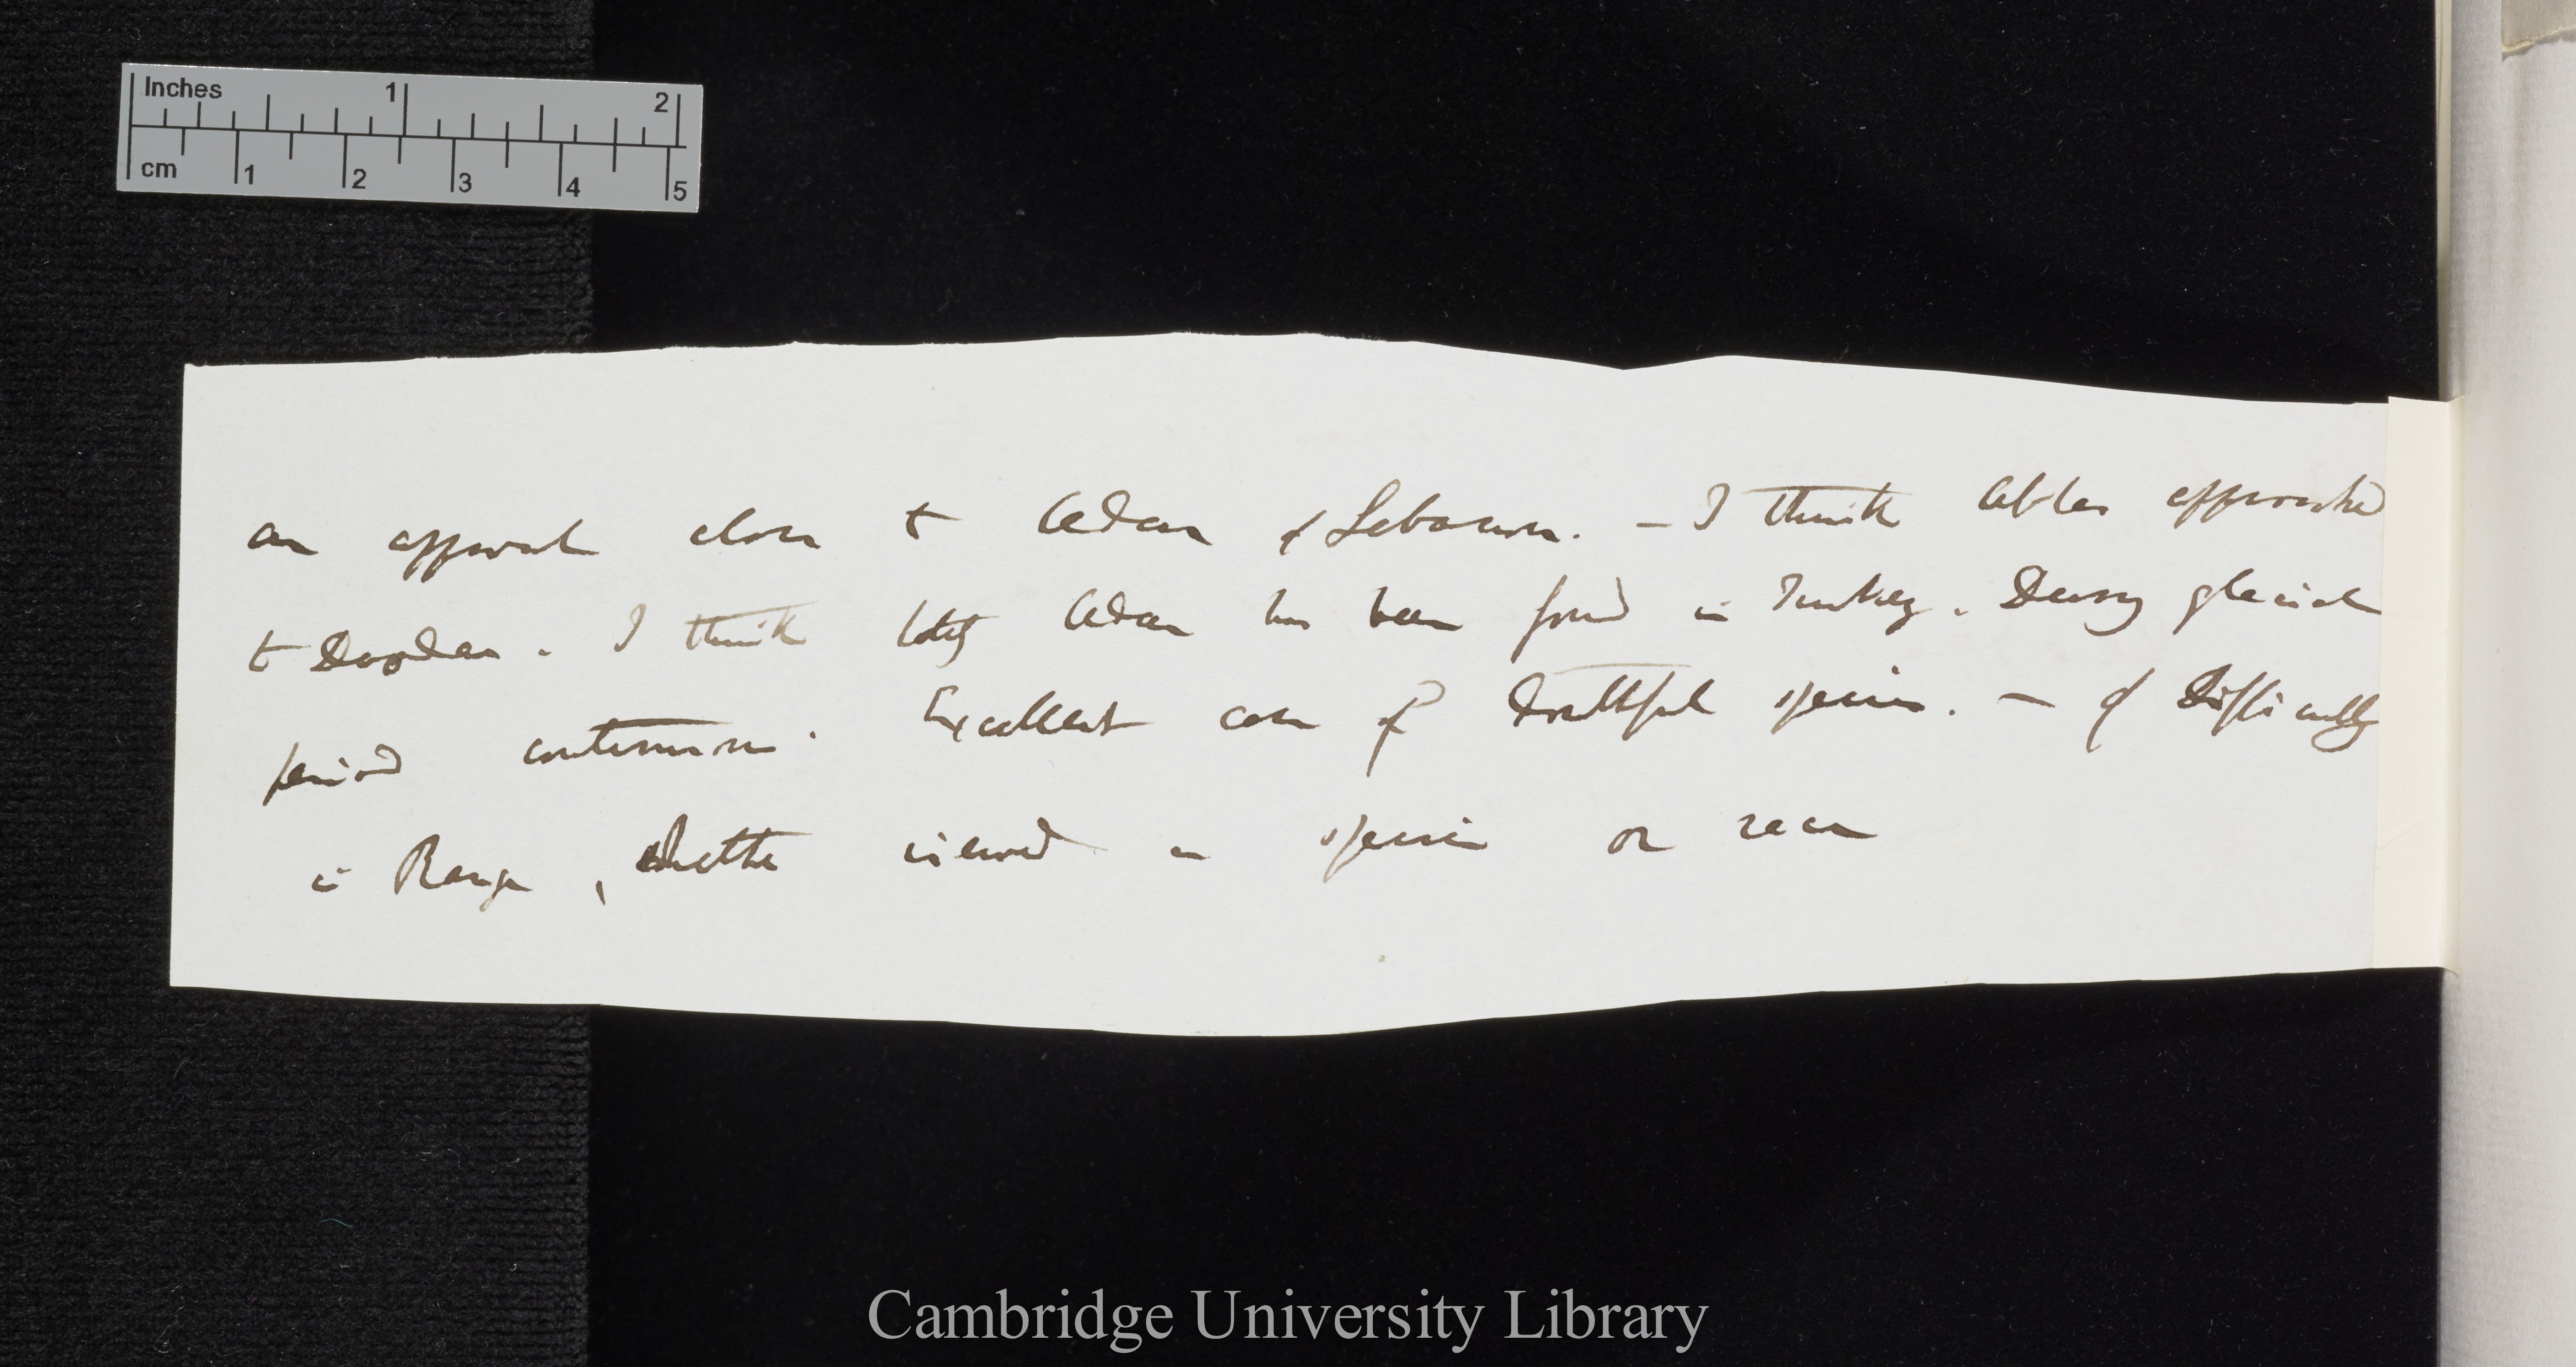 Inches 1 2
cm 1 2 3 4 5
an approach close to Cedar of Lebanon. — I think Atlas approached
to Deodar. I think lately Cedar has been found in Turkey. During glacial
period continuous. Excellent case of doubtful species. — of difficulty
in Range, whether viewed as species or race
Cambridge University Library